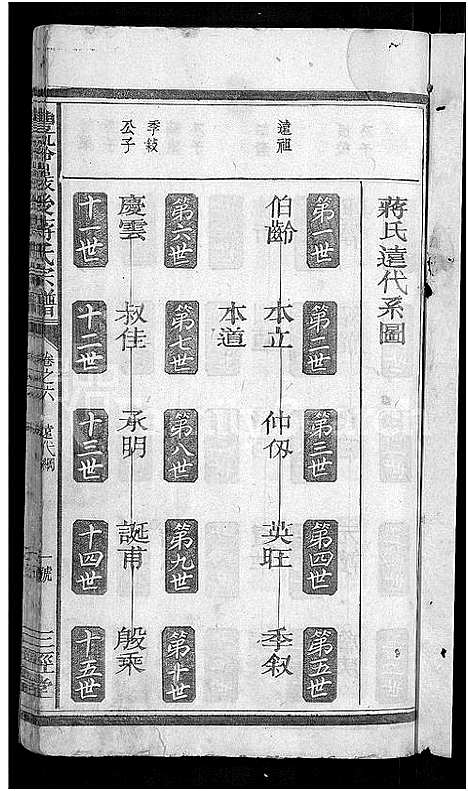 蔣氏遠代系圖
第一世
第二世
第三世
第四世
第五世
遠祖
伯齡
本立
仲伋
英旺
季叙
本道
第六世
第七世
第八世
第九世
第十世
季叙
公子
慶雲
叔佳
承明
誕甫
殷乘
十一世
十二世
十三世
十四世
十五世
後蔣氏宗譜
卷之六
遠代
一
號
三徑堂